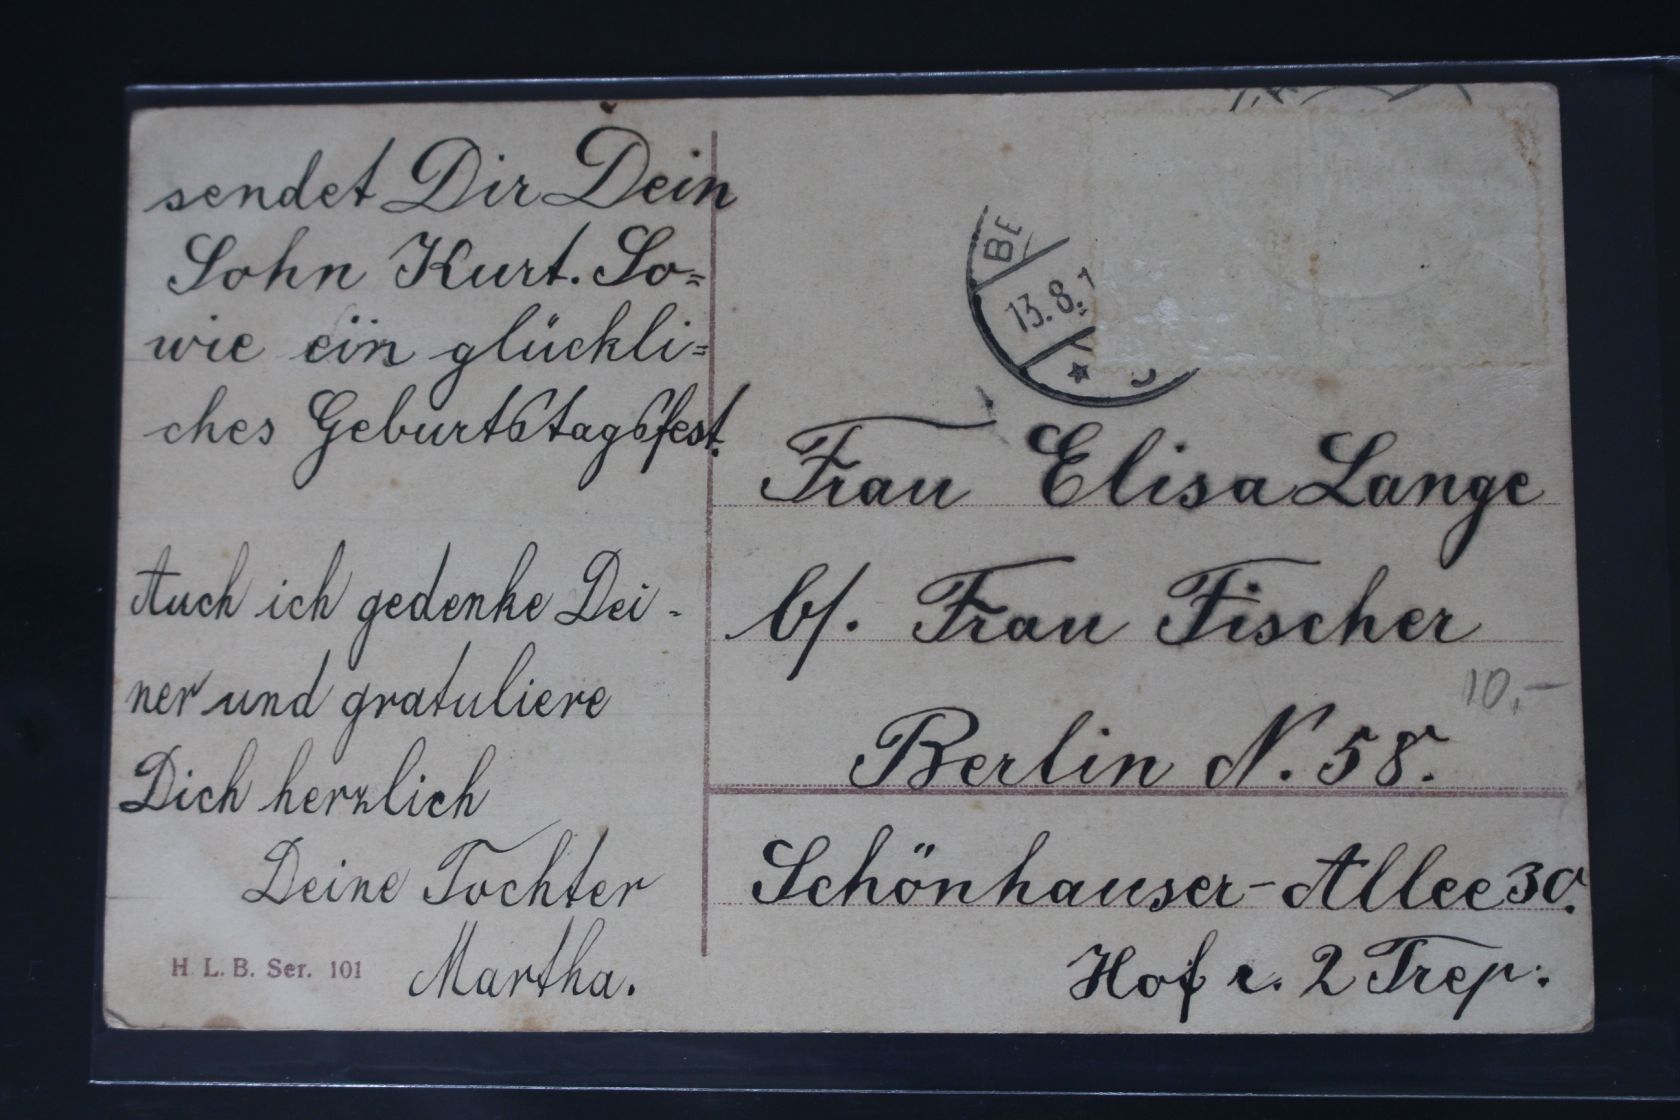 sendet Dir Dein
Sohn Kurt. So=
wie ein glückli=
ches Geburtstagsfest.
Auch ich gedenke Dei-
ner und gratuliere
Dich herzlich
Deine Tochter
Martha.
H. L. B. Ser. 101
BE
13.8.1
Frau Elisa Lange
b/. Frau Fischer
10,-
Berlin N. 58.
Schönhauser-Allee 30.
Hof r. 2 Trep.